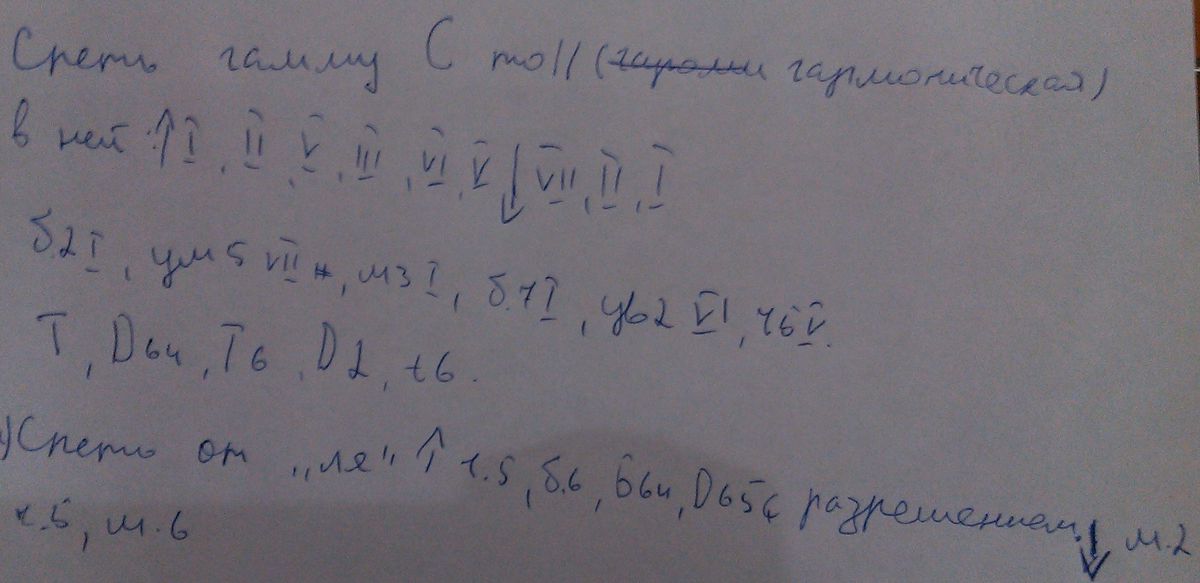 Спеть гамму C moll (гармони гармоническая)
в ней: ↑ I, II, V, III, VI, V ↓ VII, II, I
б.2 I, ум5 VII, м3 I, б.7 I, ув2 VI, ч5 V.
T, D64, T6, D2, t6.
) Спеть от „ля" ↑ ч.5, б.6, Б64, D65 с разрешением. ↓ м.2
ч.5, м.6